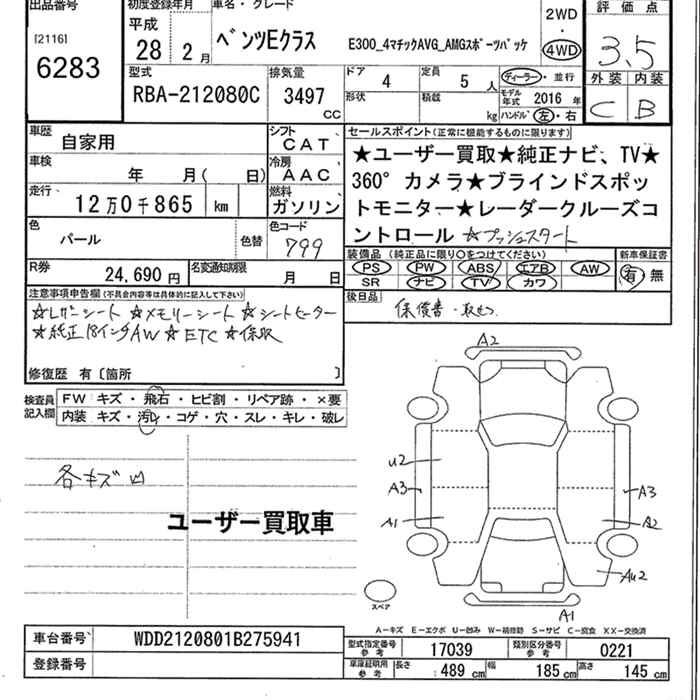 出品番号
[2116]
6283
初度登録年月
平成
28年 2月
車名・グレード
ベンツEクラス
E300_4マチックAVG_AMGスポーツパッケ
2WD
・
4WD
評価点
3.5
外装 内装
C B
型式
RBA-212080C
排気量
3497 CC
ドア 4
定員 5人
形状
積載 kg
ディーラー・並行
モデル年式 2016年
ハンドル 左・右
車歴 自家用
シフト CAT
車検 年 月( 日)
冷房 AAC
走行 12万0千865 km
燃料 ガソリン
色 パール 色替
色コード 799
R券 24,690円
名変通知期限 月 日
セールスポイント(正常に機能するものに限ります)
★ユーザー買取★純正ナビ、TV★
360°カメラ★ブラインドスポッ
トモニター★レーダークルーズコ
ントロール ☆プッシュスタート
装備品(純正品に限り○をつけてください)
PS PW ABS エアB AW
SR ナビ TV カワ
新車保証書
有・無
後日品 保償書・取セツ
注意事項申告欄(不具合内容等は具体的に記入して下さい)
☆レザーシート ☆メモリーシート ☆シートヒーター
★純正18インチAW ★ETC ★保取
修復歴 有〔箇所 〕
検査員記入欄
FW キズ・飛石・ヒビ割・リペア跡・×要
内装 キズ・汚れ・コゲ・穴・スレ・キレ・破レ
各キズ凹
ユーザー買取車
A2
U2
A3
A1
A3
A2
AU2
A1
スペア
A-キズ E-エクボ U-凹み W-補修跡 S-サビ C-腐食 XX-交換済
車台番号 WDD2120801B275941
登録番号
型式指定番号参考 17039
類別区分番号参考 0221
車庫証明用参考 長さ 489cm 幅 185cm 高さ 145cm